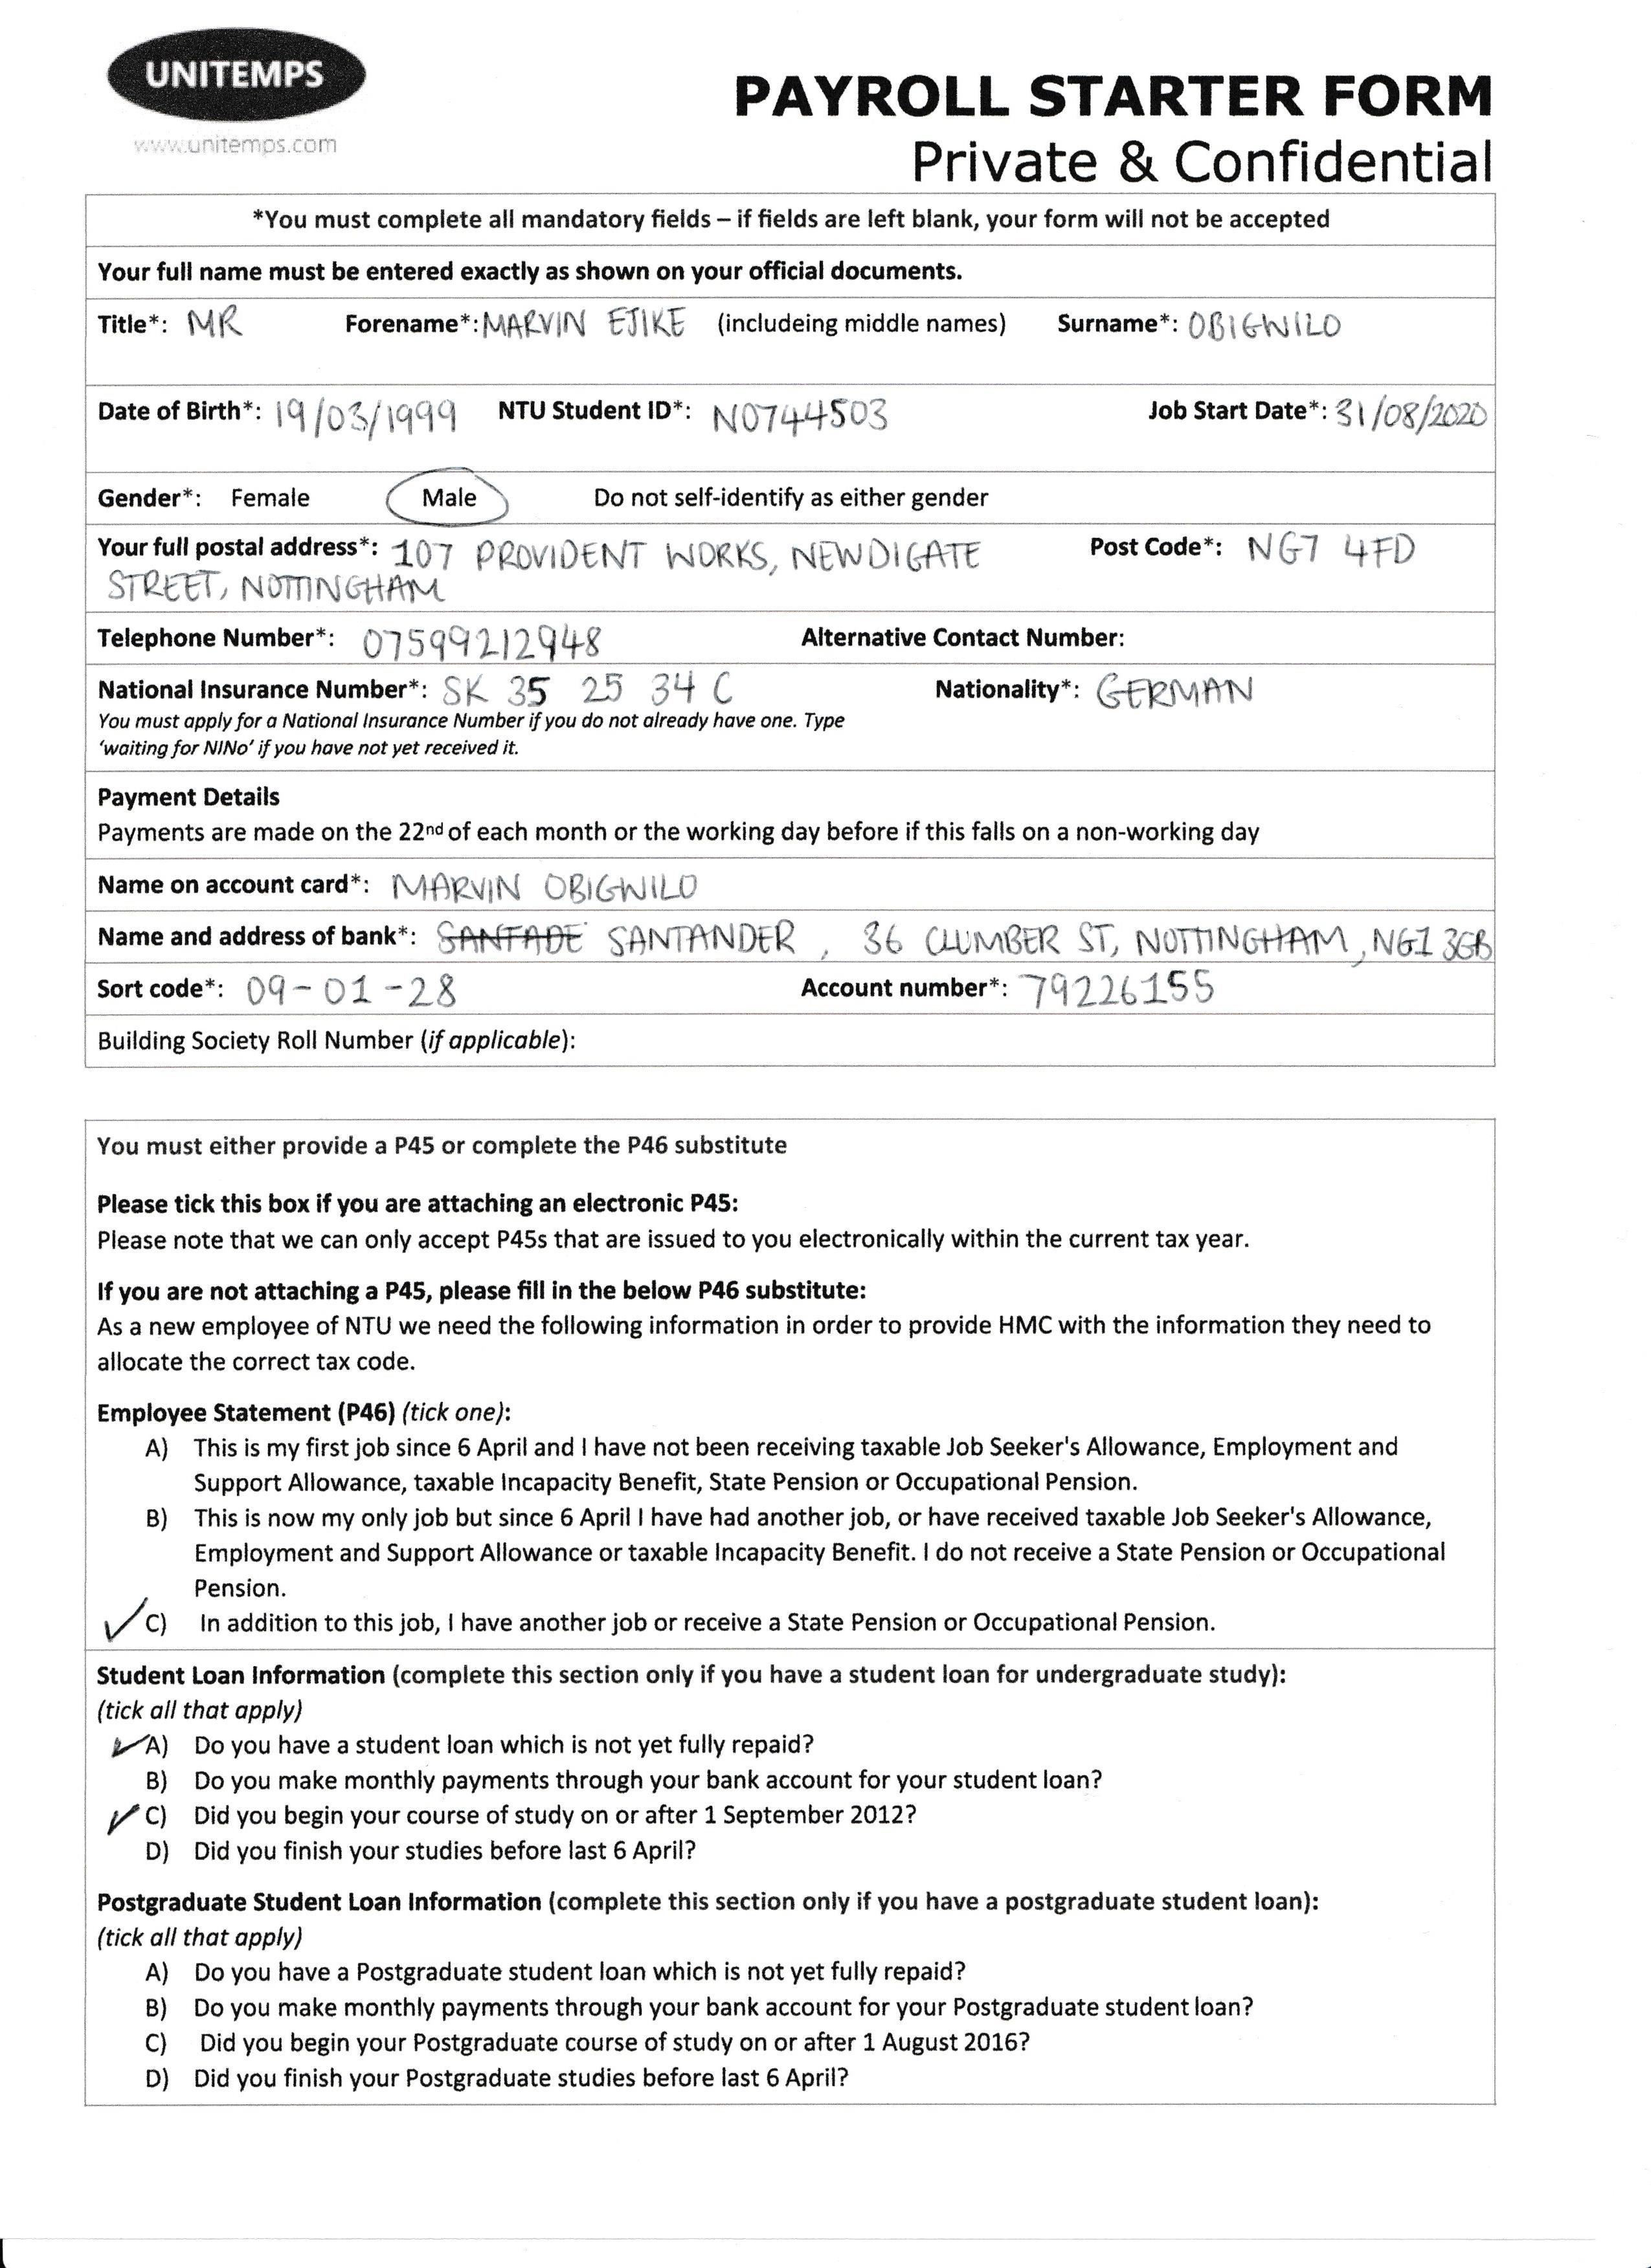 UNITEMPS
www.unitemps.com
PAYROLL STARTER FORM
Private & Confidential
*You must complete all mandatory fields – if fields are left blank, your form will not be accepted
Your full name must be entered exactly as shown on your official documents.
Title*: MR Forename*: MARVIN EJIKE (includeing middle names) Surname*: OBIGWILO
Date of Birth*: 19/03/1999 NTU Student ID*: N0744503 Job Start Date*: 31/08/2020
Gender*: Female Male Do not self-identify as either gender
Your full postal address*: 107 PROVIDENT WORKS, NEWDIGATE Post Code*: NG7 4FD
STREET, NOTTINGHAM
Telephone Number*: 07599212948 Alternative Contact Number:
National Insurance Number*: SK 35 25 34 C Nationality*: GERMAN
You must apply for a National Insurance Number if you do not already have one. Type
‘waiting for NINo’ if you have not yet received it.
Payment Details
Payments are made on the 22nd of each month or the working day before if this falls on a non-working day
Name on account card*: MARVIN OBIGWILO
Name and address of bank*: SANTANDER, 36 CLUMBER ST, NOTTINGHAM, NG1 3GB
Sort code*: 09-01-28 Account number*: 79226155
Building Society Roll Number (if applicable):
You must either provide a P45 or complete the P46 substitute
Please tick this box if you are attaching an electronic P45:
Please note that we can only accept P45s that are issued to you electronically within the current tax year.
If you are not attaching a P45, please fill in the below P46 substitute:
As a new employee of NTU we need the following information in order to provide HMC with the information they need to
allocate the correct tax code.
Employee Statement (P46) (tick one):
A) This is my first job since 6 April and I have not been receiving taxable Job Seeker's Allowance, Employment and
Support Allowance, taxable Incapacity Benefit, State Pension or Occupational Pension.
B) This is now my only job but since 6 April I have had another job, or have received taxable Job Seeker's Allowance,
Employment and Support Allowance or taxable Incapacity Benefit. I do not receive a State Pension or Occupational
Pension.
✓ C) In addition to this job, I have another job or receive a State Pension or Occupational Pension.
Student Loan Information (complete this section only if you have a student loan for undergraduate study):
(tick all that apply)
✓ A) Do you have a student loan which is not yet fully repaid?
B) Do you make monthly payments through your bank account for your student loan?
✓ C) Did you begin your course of study on or after 1 September 2012?
D) Did you finish your studies before last 6 April?
Postgraduate Student Loan Information (complete this section only if you have a postgraduate student loan):
(tick all that apply)
A) Do you have a Postgraduate student loan which is not yet fully repaid?
B) Do you make monthly payments through your bank account for your Postgraduate student loan?
C) Did you begin your Postgraduate course of study on or after 1 August 2016?
D) Did you finish your Postgraduate studies before last 6 April?